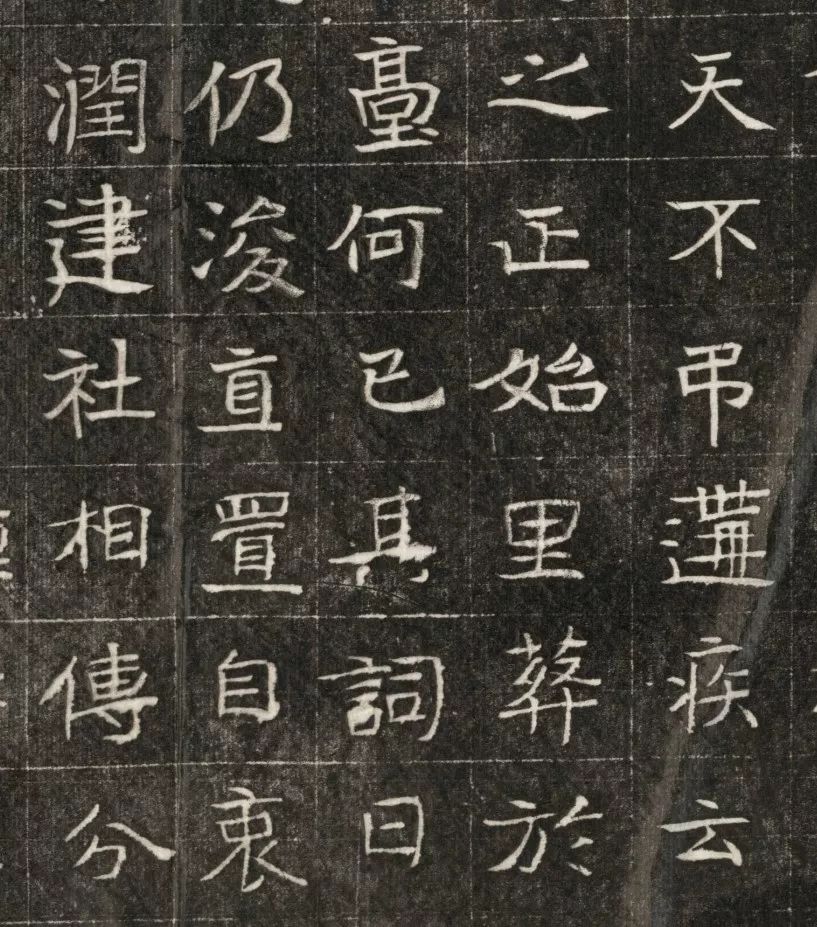 天不弔遘疾云
之正始里葬於
臺何已其詞曰
仍浚直置自衷
潤建社相傳分